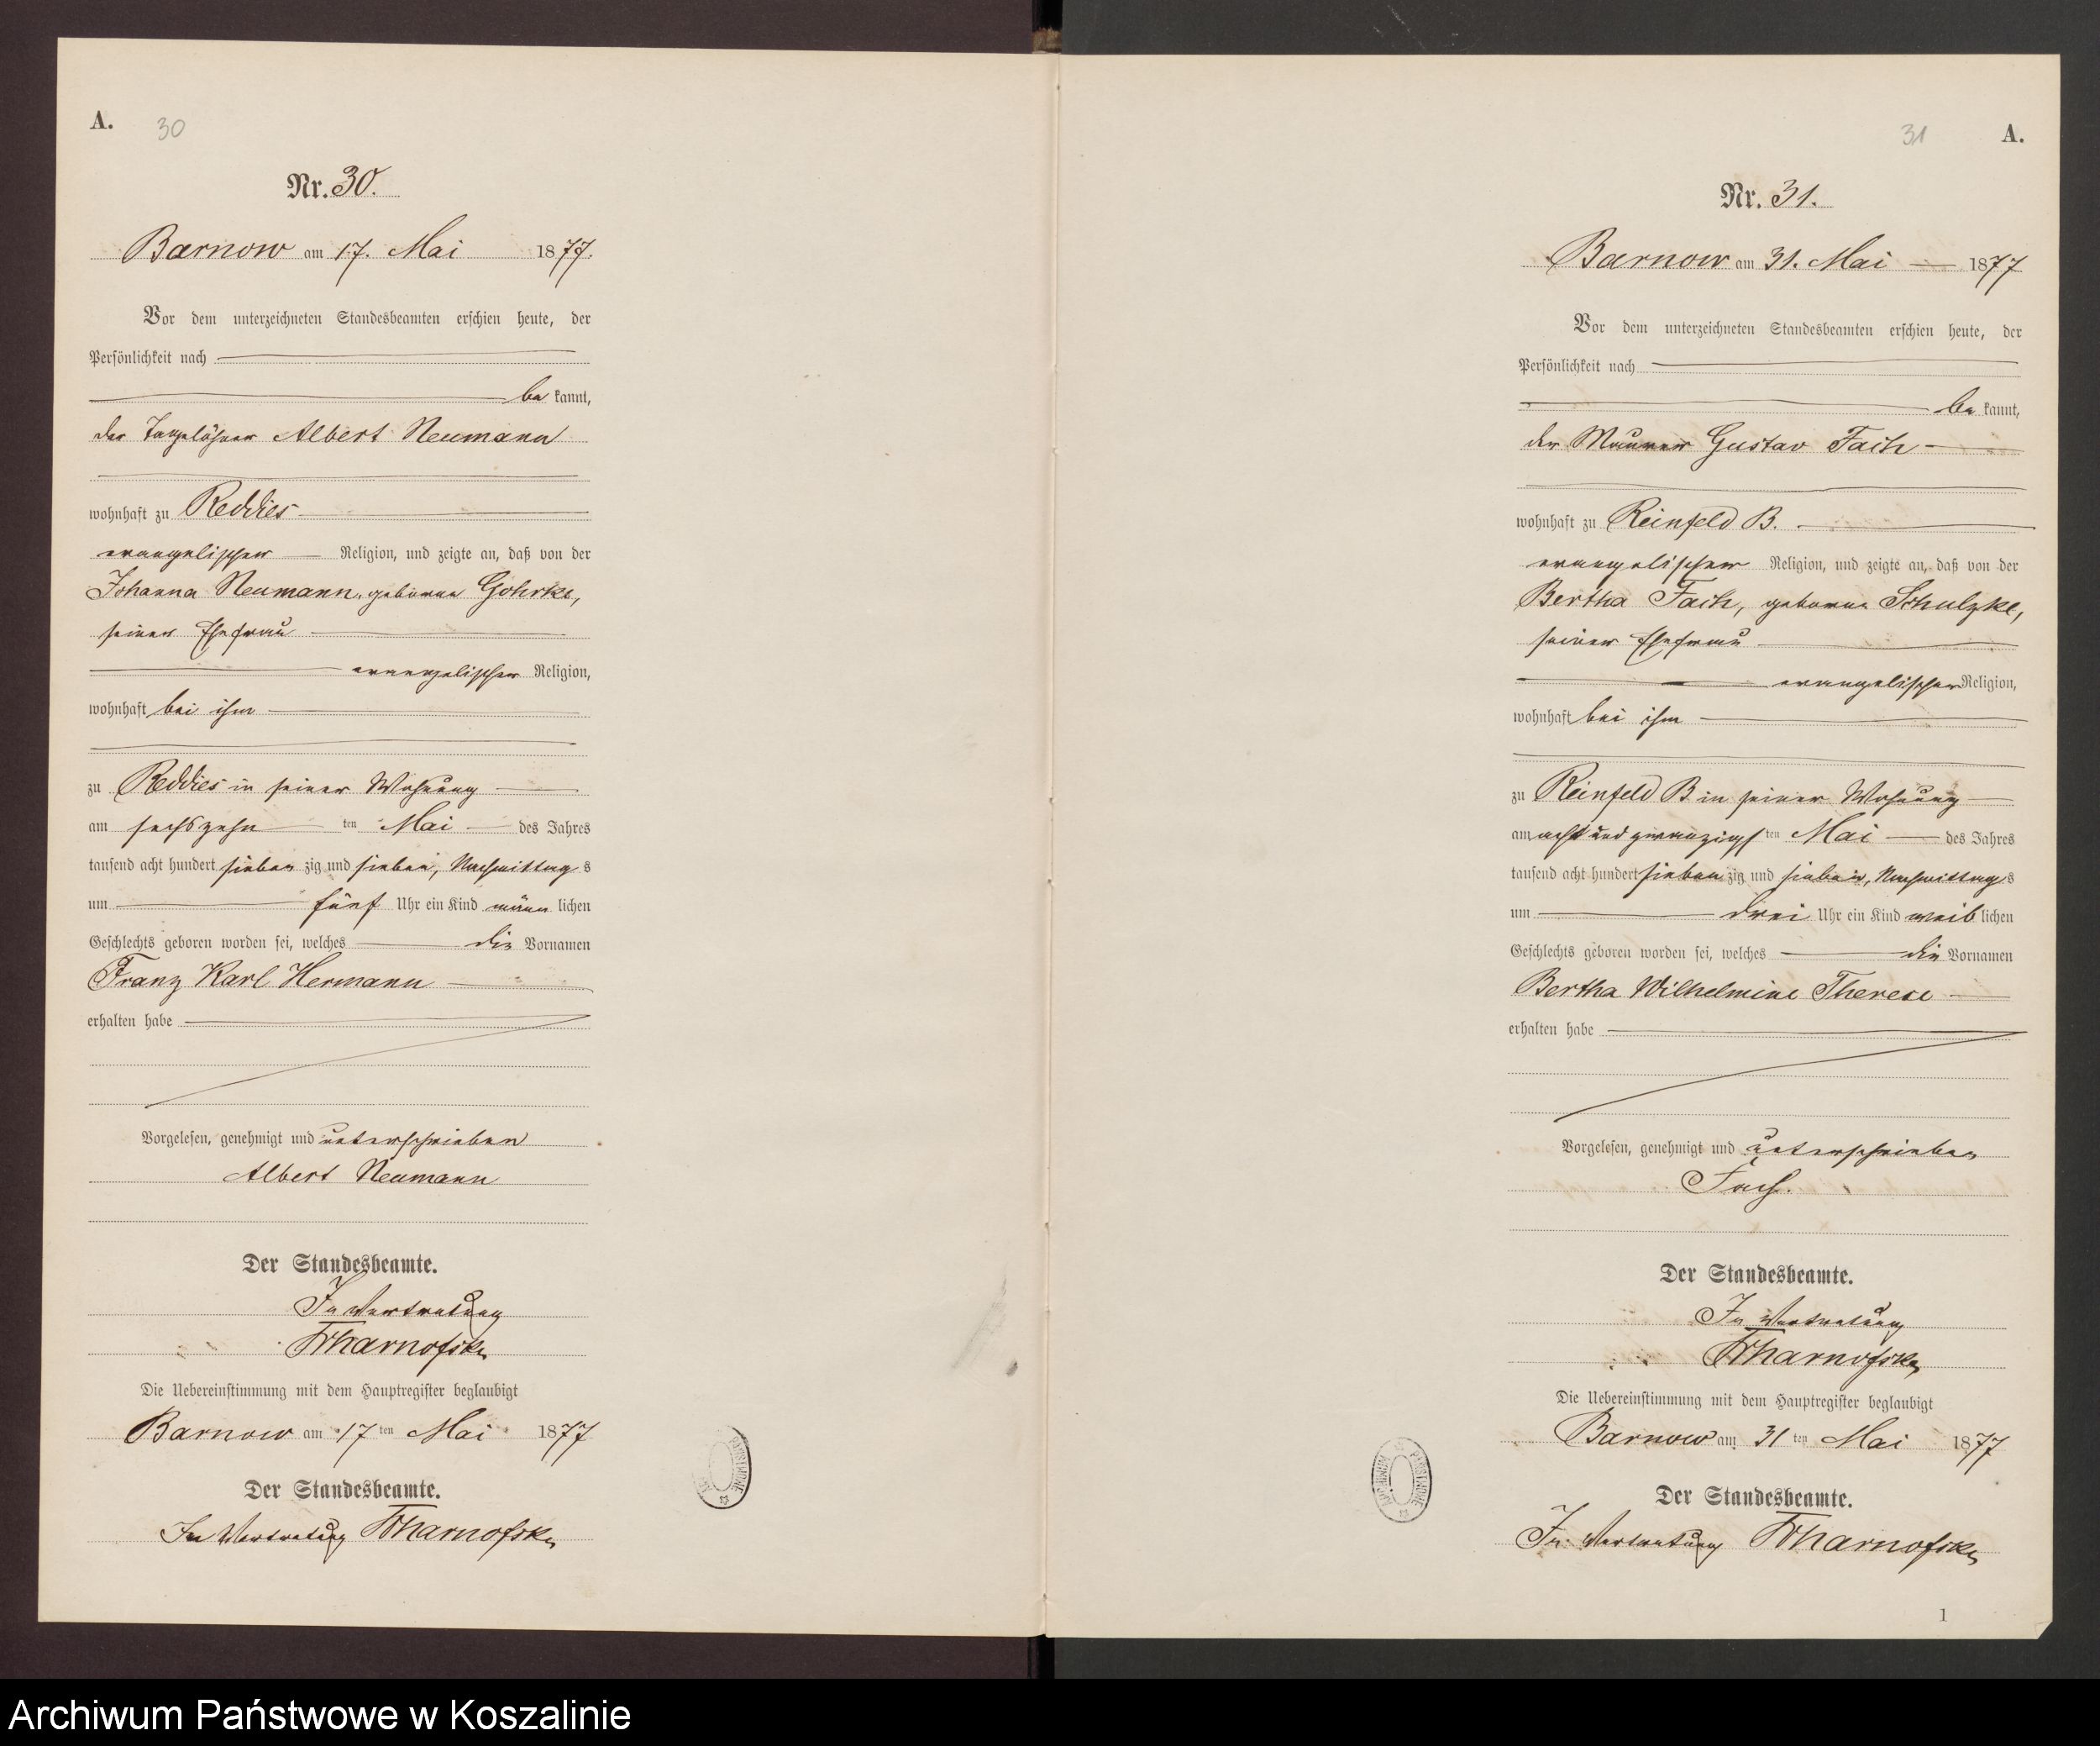 A. 30
Nr. 30.
Barnow am 17. Mai 1877.
Vor dem unterzeichneten Standesbeamten erschien heute, der
Persönlichkeit nach
be kannt,
der Tagelöhner Albert Neumann
wohnhaft zu Reddies
evangelischer Religion, und zeigte an, daß von der
Johanna Neumann, geborne Gohrke,
seiner Ehefrau
evangelischer Religion,
wohnhaft bei ihm
zu Reddies in seiner Wohnung
am sechszehn ten Mai des Jahres
tausend acht hundert sieben zig und sieben, Nachmittag s
um fünf Uhr ein Kind männ lichen
Geschlechts geboren worden sei, welches die Vornamen
Franz Karl Hermann
erhalten habe
Vorgelesen, genehmigt und unterschrieben
Albert Neumann
Der Standesbeamte.
In Vertretung
Die Uebereinstimmung mit dem Hauptregister beglaubigt
Barnow am 17 ten Mai 1877
Der Standesbeamte.
In Vertretung
31 A.
Nr. 31.
Barnow am 31. Mai 1877
Vor dem unterzeichneten Standesbeamten erschien heute, der
Persönlichkeit nach
be kannt,
der Maurer Gustav Fach
wohnhaft zu Reinfeld B.
evangelischer Religion, und zeigte an, daß von der
Bertha Fach, geborne Schulzke,
seiner Ehefrau
evangelischer Religion,
wohnhaft bei ihm
zu Reinfeld B in seiner Wohnung
am acht und zwanzigs ten Mai des Jahres
tausend acht hundert sieben zig und sieben, Nachmittag s
um drei Uhr ein Kind weib lichen
Geschlechts geboren worden sei, welches die Vornamen
Bertha Wilhelmine Therese
erhalten habe
Vorgelesen, genehmigt und unterschrieben
Fach.
Der Standesbeamte.
In Vertretung
Die Uebereinstimmung mit dem Hauptregister beglaubigt
Barnow am 31 ten Mai 1877
Der Standesbeamte.
In Vertretung
1
Archiwum Państwowe w Koszalinie